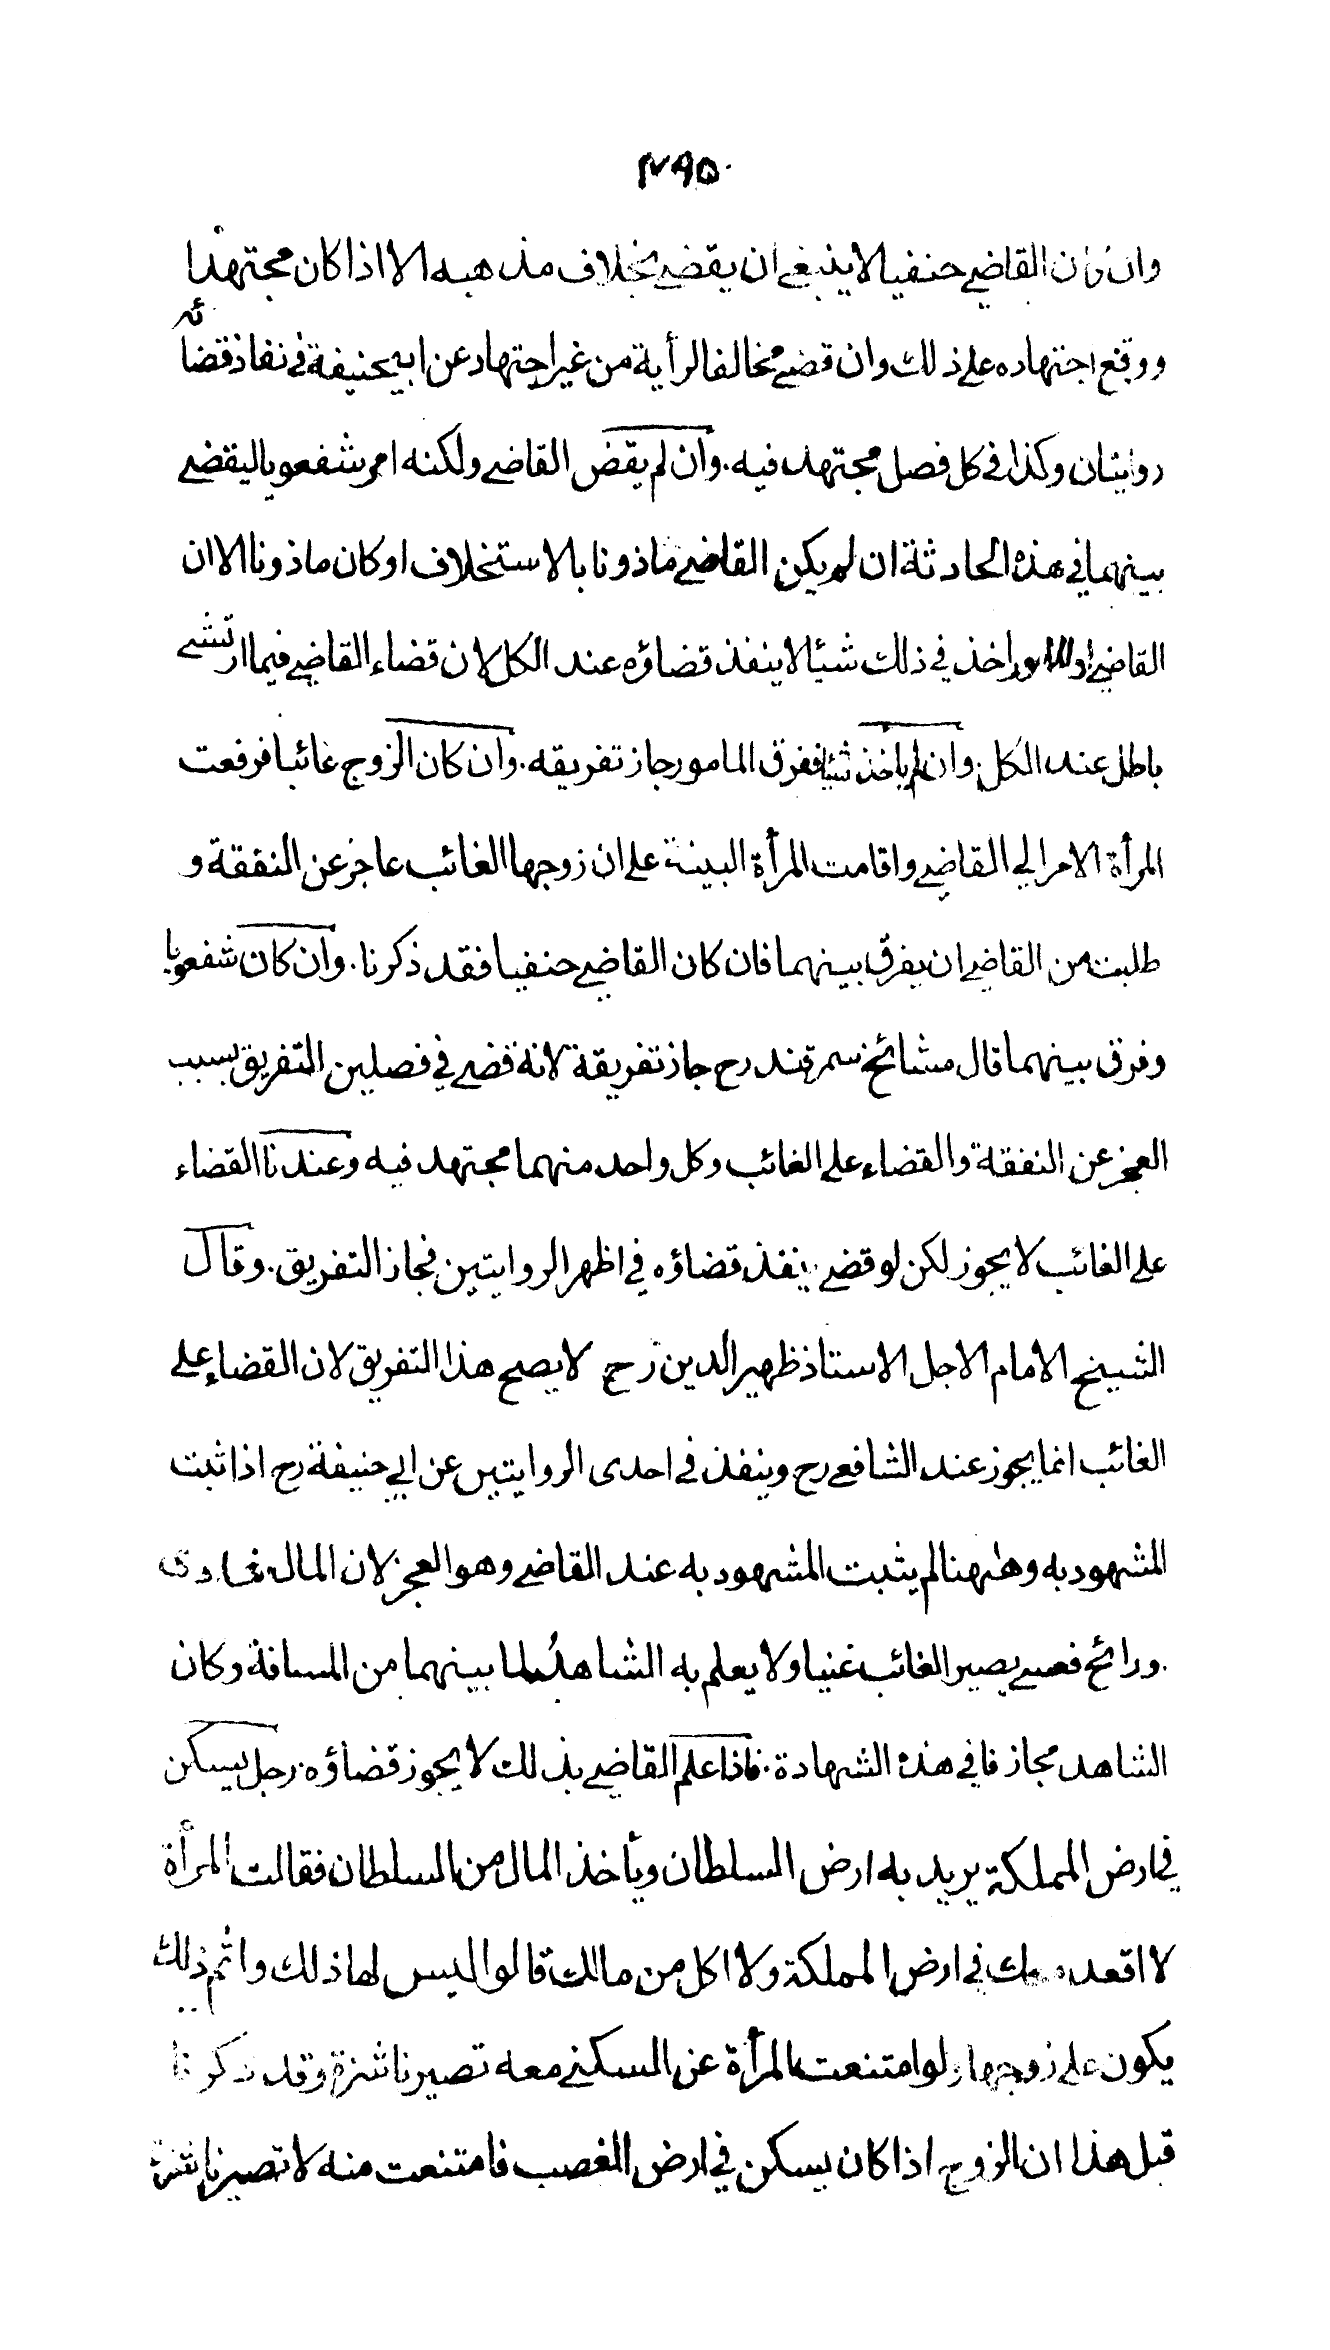 ۴۹۵
وان كان القاضي حنفيا لا ينبغي ان يقضي بخلاف مذهبه الا اذا كان مجتهدا
ووقع اجتهاده على ذلك وان قضى مخالفا لرأية من غير اجتهاد عن ابيحنيفة في نفاذ قضائه
روايتان وكذا في كل فصل مجتهد فيه . وان لم يقض القاضي ولكنه امر شفعويا ليقضي
بينهما في هذه الحادثة ان لم يكن القاضي ماذونا بالاستخلاف او كان ماذونا الا ان
القاضي او المامور اخذ في ذلك شيئا لا ينفذ قضاؤه عند الكل لان قضاء القاضي فيما ارتشى
باطل عند الكل . وان لم ياخذ شيئا ففرق المامور جاز تفريقه . وان كان الزوج غائبا فرفعت
المرأة الامر الى القاضي واقامت المرأة البينة على ان زوجها الغائب عاجز عن النفقة و
طلبت من القاضي ان يفرق بينهما فان كان القاضي حنفيا فقد ذكرنا . وان كان شفعويا
وفرق بينهما قال مشائخ سمرقند رح جاز تفريقة لانه قضى في فصلين التفريق بسبب
العجز عن النفقة والقضاء على الغائب وكل واحد منهما مجتهد فيه وعندنا القضاء
على الغائب لا يجوز لكن لو قضى ينفذ قضاؤه في اظهر الروايتين فجاز التفريق . وقال
الشيخ الامام الاجل الاستاذ ظهير الدين رح لا يصح هذا التفريق لان القضاء على
الغائب انما يجوز عند الشافعي رح وينفذ في احدى الروايتين عن ابي حنيفة رح اذا ثبت
المشهود به وههنا لم يثبت المشهود به عند القاضي وهو العجز لان المال غادى
ورائح فعسى يصير الغائب غنيا ولا يعلم به الشاهد لما بينهما من المسافة وكان
الشاهد مجازفا في هذه الشهادة . فاذا علم القاضي بذلك لا يجوز قضاؤه . رجل يسكن
في ارض المملكة يريد به ارض السلطان ويأخذ المال من السلطان فقالت المرأة
لا اقعد معك في ارض المملكة ولا اكل من مالك قالوا ليس لها ذلك واثم ذلك
يكون على زوجها ولو امتنعت المرأة عن السكنى معه تصير ناشزة وقد ذكرنا
قبل هذا ان الزوج اذا كان يسكن في ارض الغصب فامتنعت منه لا تصير ناشزة